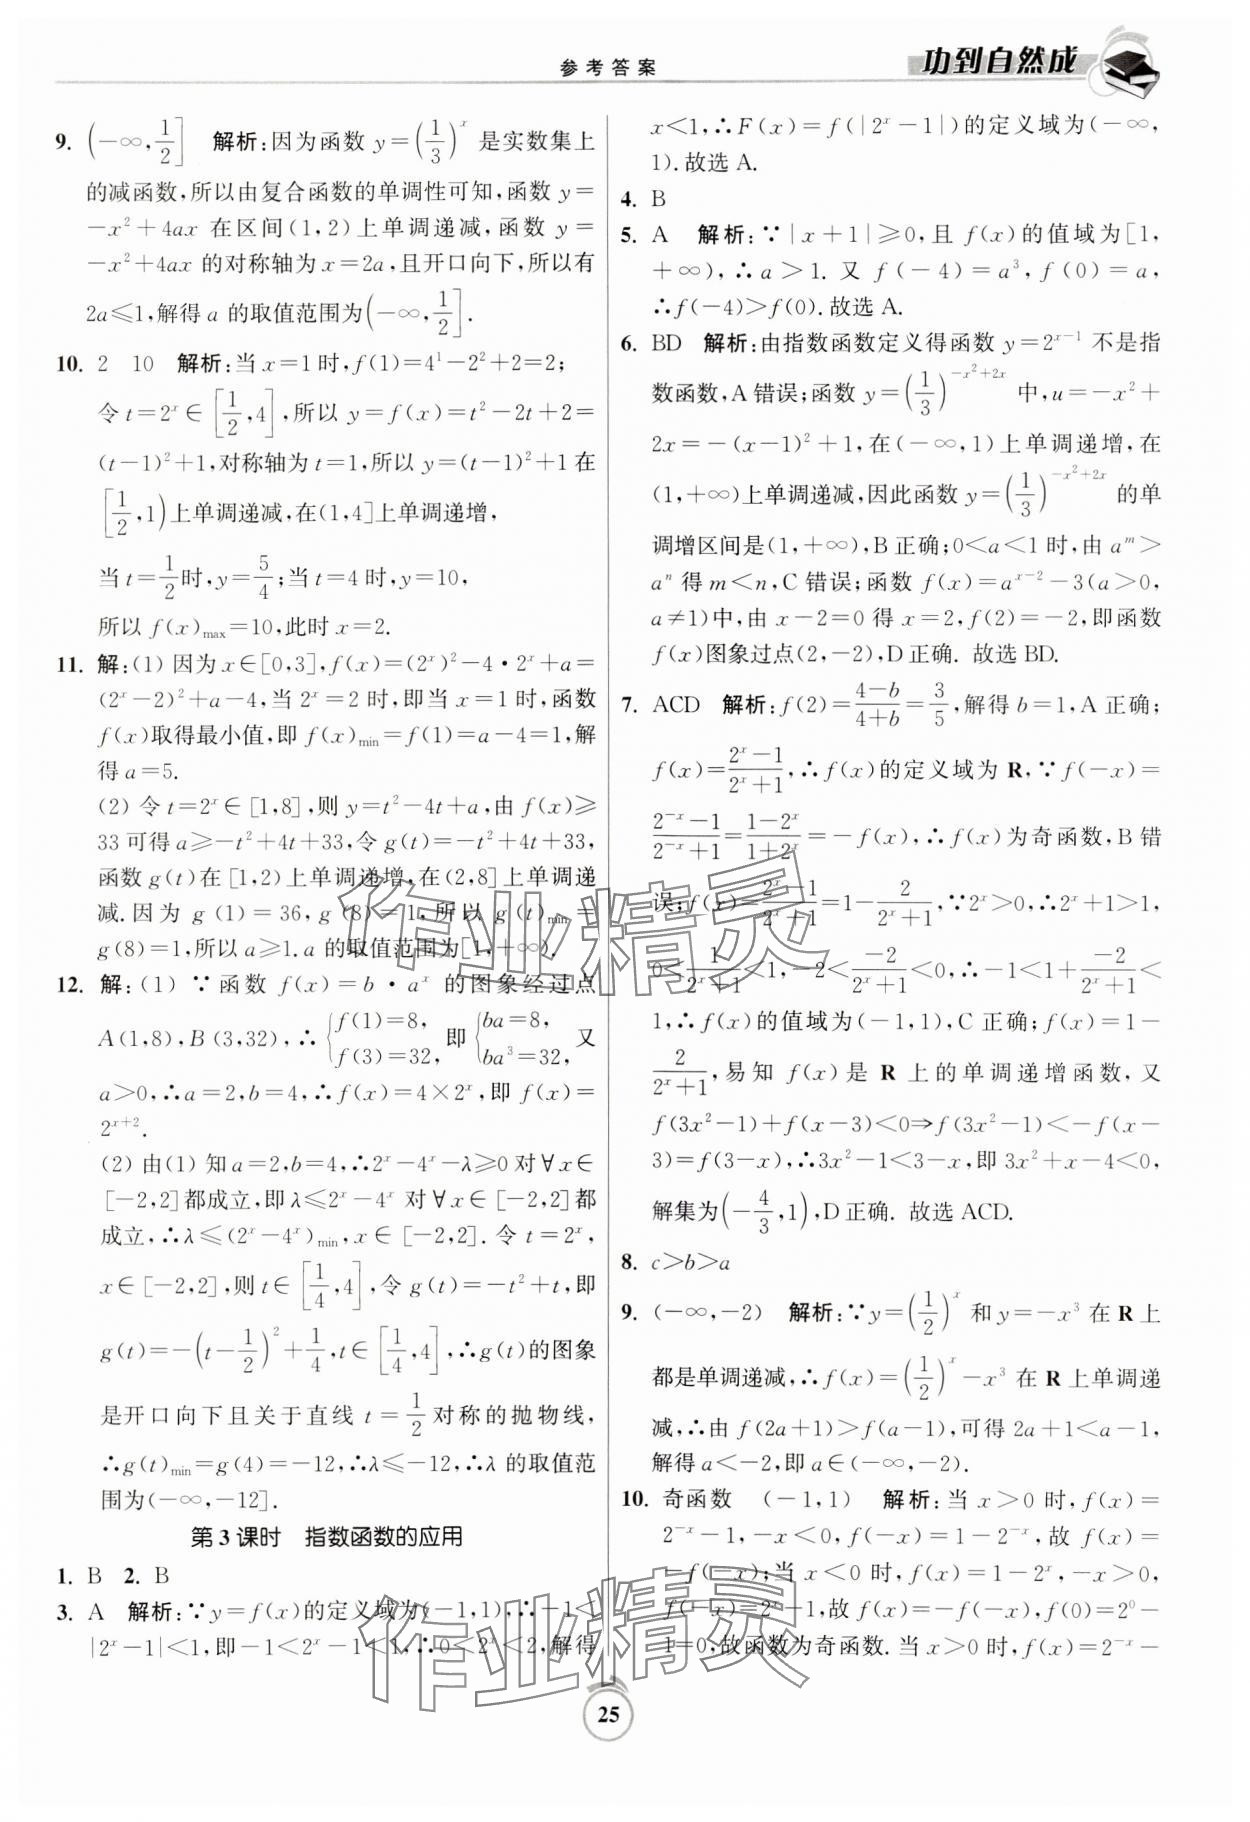 参考答案
功到自然成
9. (−∞,1/2] 解析:因为函数 y=(1/3)^x 是实数集上
的减函数,所以由复合函数的单调性可知,函数 y=
−x²+4ax 在区间(1,2)上单调递减,函数 y=
−x²+4ax 的对称轴为 x=2a,且开口向下,所以有
2a≤1,解得 a 的取值范围为(−∞,1/2].
10. 2 10 解析:当 x=1 时,f(1)=4¹−2²+2=2;
令 t=2^x∈[1/2,4],所以 y=f(x)=t²−2t+2=
(t−1)²+1,对称轴为 t=1,所以 y=(t−1)²+1 在
[1/2,1)上单调递减,在(1,4]上单调递增,
当 t=1/2时,y=5/4;当 t=4 时,y=10,
所以 f(x)max=10,此时 x=2.
11. 解:(1) 因为 x∈[0,3],f(x)=(2^x)²−4·2^x+a=
(2^x−2)²+a−4,当 2^x=2 时,即当 x=1 时,函数
f(x)取得最小值,即 f(x)min=f(1)=a−4=1,解
得 a=5.
(2) 令 t=2^x∈[1,8],则 y=t²−4t+a,由 f(x)≥
33 可得 a≥−t²+4t+33,令 g(t)=−t²+4t+33,
函数 g(t)在[1,2)上单调递增,在(2,8]上单调递
减.因为 g(1)=36,g(8)=1,所以 g(t)min=
g(8)=1,所以 a≥1.a 的取值范围为[1,+∞).
12. 解:(1) ∵函数 f(x)=b·a^x 的图象经过点
A(1,8),B(3,32),∴{f(1)=8, f(3)=32, 即{ba=8, ba³=32, 又
a>0,∴a=2,b=4,∴f(x)=4×2^x,即 f(x)=
2^(x+2).
(2) 由(1)知 a=2,b=4,∴2^x−4^x−λ≥0 对∀x∈
[−2,2]都成立,即 λ≤2^x−4^x 对∀x∈[−2,2]都
成立,∴λ≤(2^x−4^x)min,x∈[−2,2].令 t=2^x,
x∈[−2,2],则 t∈[1/4,4],令 g(t)=−t²+t,即
g(t)=−(t−1/2)²+1/4,t∈[1/4,4],∴g(t)的图象
是开口向下且关于直线 t=1/2 对称的抛物线,
∴g(t)min=g(4)=−12,∴λ≤−12,∴λ 的取值范
围为(−∞,−12].
第3课时 指数函数的应用
1. B 2. B
3. A 解析:∵y=f(x)的定义域为(−1,1),∴−1<
|2^x−1|<1,即−1<2^x−1<1,∴0<2^x<2,解得
x<1,∴F(x)=f(|2^x−1|)的定义域为(−∞,
1).故选 A.
4. B
5. A 解析:∵|x+1|≥0,且 f(x)的值域为[1,
+∞),∴a>1. 又 f(−4)=a³,f(0)=a,
∴f(−4)>f(0).故选 A.
6. BD 解析:由指数函数定义得函数 y=2^(x−1) 不是指
数函数,A 错误;函数 y=(1/3)^(−x²+2x) 中,u=−x²+
2x=−(x−1)²+1,在(−∞,1)上单调递增,在
(1,+∞)上单调递减,因此函数 y=(1/3)^(−x²+2x) 的单
调增区间是(1,+∞),B 正确;0<a<1 时,由 a^m>
a^n 得 m<n,C 错误;函数 f(x)=a^(x−2)−3(a>0,
a≠1)中,由 x−2=0 得 x=2,f(2)=−2,即函数
f(x)图象过点(2,−2),D 正确. 故选 BD.
7. ACD 解析:f(2)=(4−b)/(4+b)=3/5,解得 b=1,A 正确;
f(x)=(2^x−1)/(2^x+1),∴f(x)的定义域为 R,∵f(−x)=
(2^(−x)−1)/(2^(−x)+1)=(1−2^x)/(1+2^x)=−f(x),∴f(x)为奇函数,B 错
误;f(x)=(2^x−1)/(2^x+1)=1−2/(2^x+1),∵2^x>0,∴2^x+1>1,
0<1/(2^x+1)<1,−2<−2/(2^x+1)<0,∴−1<1+−2/(2^x+1)<
1,∴f(x)的值域为(−1,1),C 正确;f(x)=1−
2/(2^x+1),易知 f(x)是 R 上的单调递增函数,又
f(3x²−1)+f(x−3)<0⇒f(3x²−1)<−f(x−
3)=f(3−x),∴3x²−1<3−x,即 3x²+x−4<0,
解集为(−4/3,1),D 正确. 故选 ACD.
8. c>b>a
9. (−∞,−2) 解析:∵y=(1/2)^x 和 y=−x³ 在 R 上
都是单调递减,∴f(x)=(1/2)^x−x³ 在 R 上单调递
减,∴由 f(2a+1)>f(a−1),可得 2a+1<a−1,
解得 a<−2,即 a∈(−∞,−2).
10. 奇函数 (−1,1) 解析:当 x>0 时,f(x)=
2^(−x)−1,−x<0,f(−x)=1−2^(−x),故 f(x)=
−f(−x);当 x<0 时,f(x)=1−2^x,−x>0,
f(−x)=2^x−1,故 f(x)=−f(−x),f(0)=2⁰−
1=0,故函数为奇函数. 当 x>0 时,f(x)=2^(−x)−
作业精灵
作业精灵
25